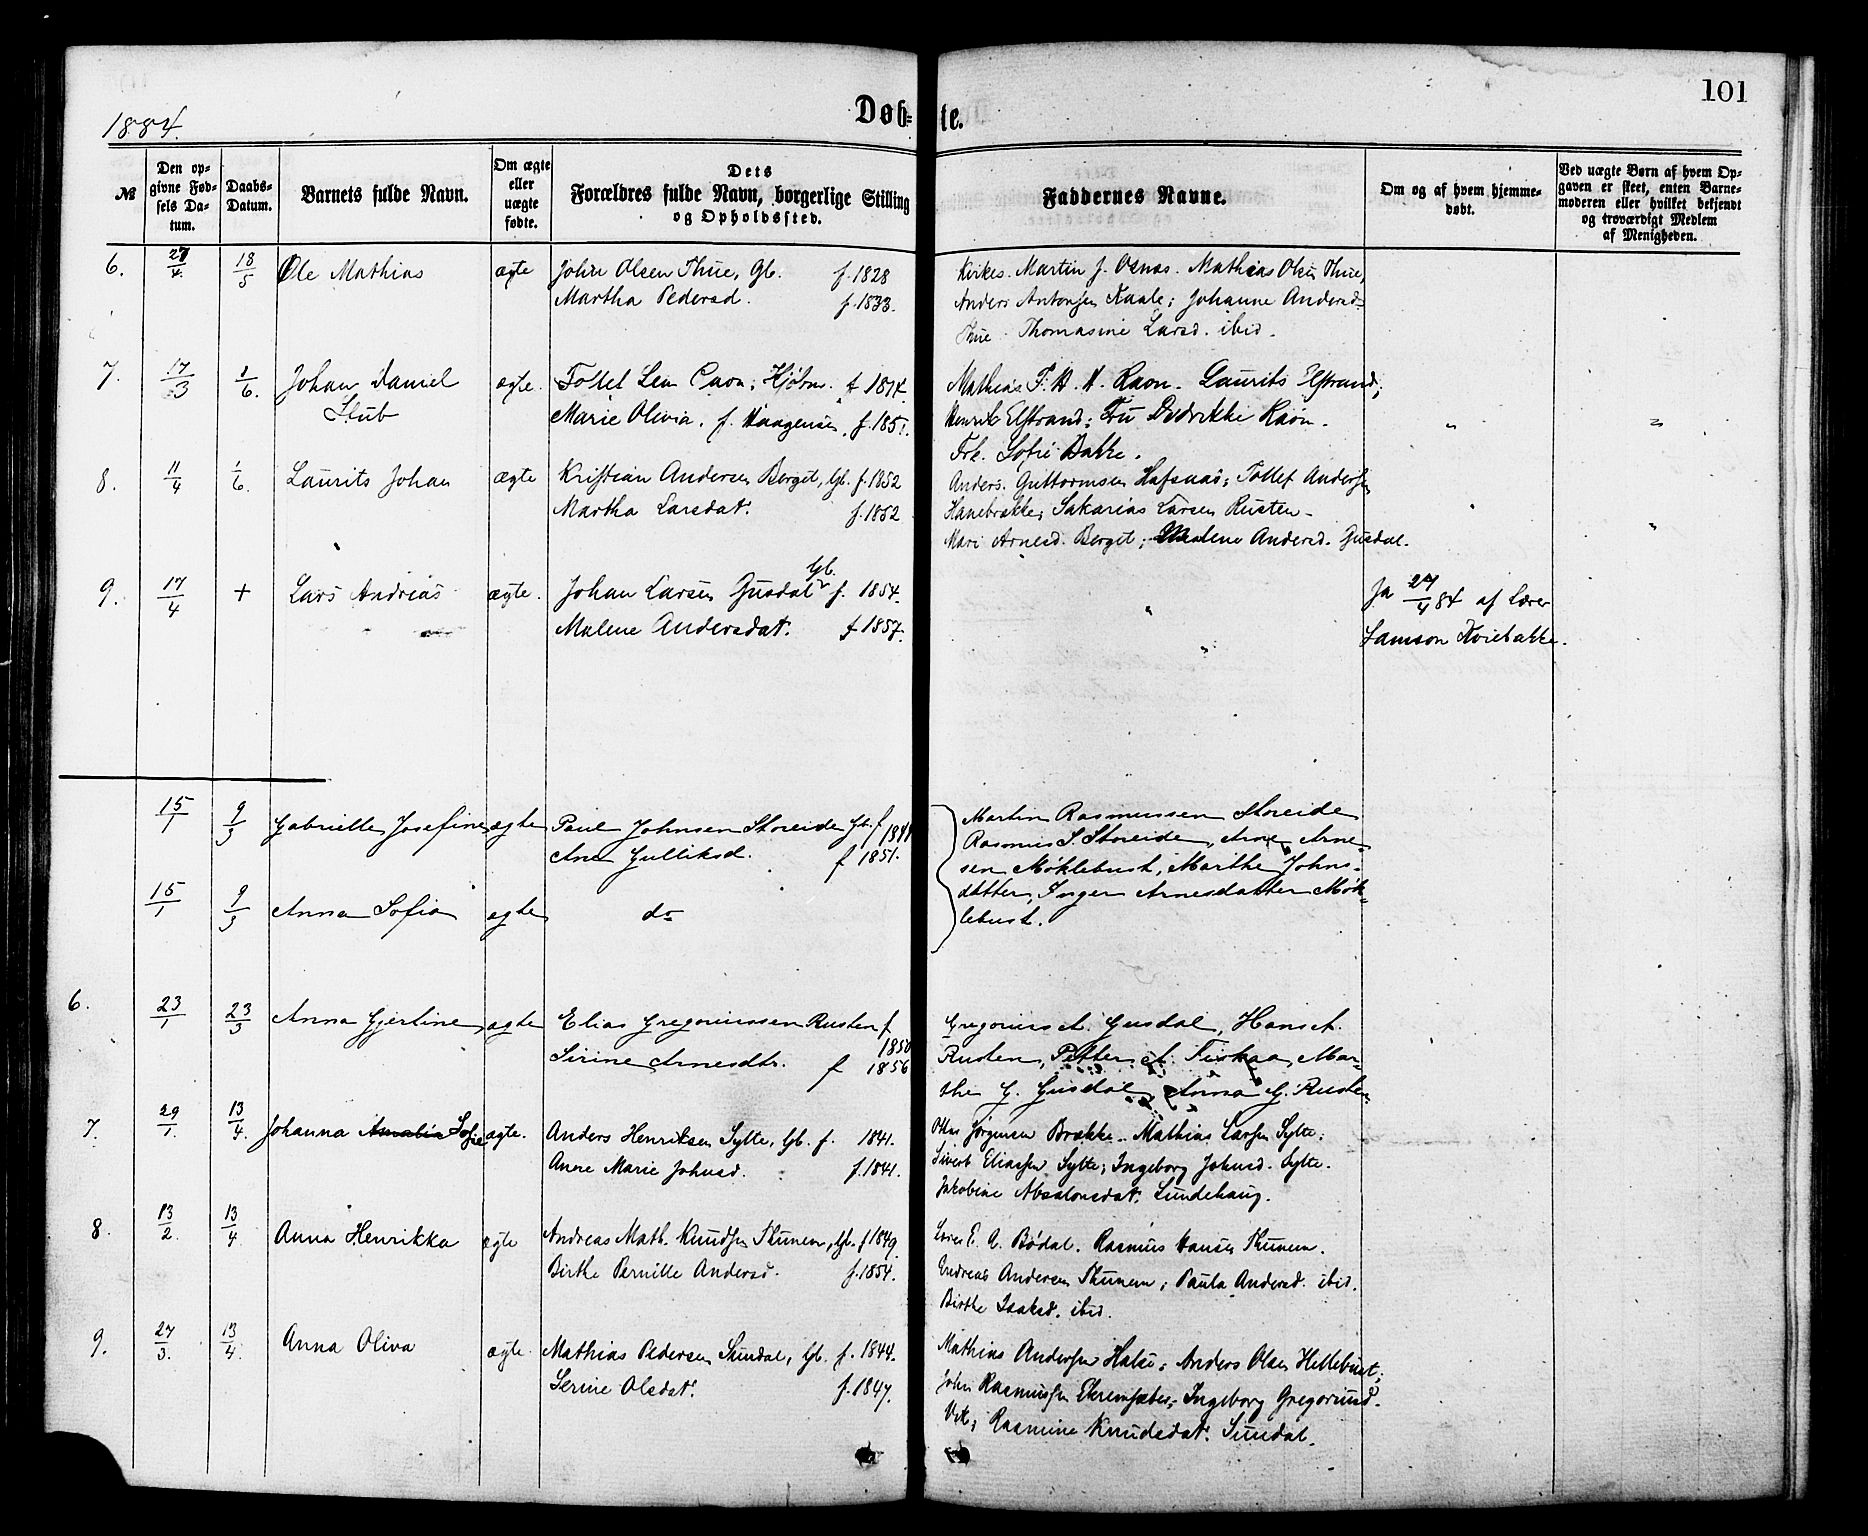 101
1884.
Døb- te.
№
Den opgivne Fødsels Datum.
Daabs-Datum.
Barnets fulde Navn.
Om ægte eller uægte fødte.
Dets Forældres fulde Navn, borgerlige Stilling og Opholdssted.
Faddernes Navne.
Om og af hvem hjemmedøbt.
Ved uægte Børn af hvem Opgaven er skeet, enten Barnemoderen eller hvilket bekjendt og troværdigt Medlem af Menigheden.
6. 27/4. 18/5 Ole Mathias ægte John Olsen Thue, Gb. f. 1828
Martha Pedersd. f. 1833.
Kirkes. Martin J. Osnas. Mathias Olsen Thue,
Anders Antonsen Kaale; Johanne Andersd.
Thue Thomasine Larsd. ibid.
7. 17/3 1/6. Johan Daniel Stub ægte. Kjøbm.
Marie Olivia, f. Haagensen, f. 1851.
Laurits Elstrand;
Henrik Elstrand; Fru Dedrikke
Frk. Sofie Bakke.
8. 11/4 1/6. Laurits Johan ægte Kristian Andersen Berget, Gb. f. 1852
Martha Larsdat. f. 1852
Anders Guttormsen Hafsnas; Tollef Andersen
Hanebrække; Sakarias Larsen Rusten
Mari Arnesd. Berget; Malene Andersd. Gusdal.
9. 17/4 + Lars Andreas ægte. Johan Larsen Gusdal Gb. f. 1854.
Malene Andersdat. f 1857.
Ja 27/4 84 af Lærer
Samson Kviebakke.
15/1 9/3 Gabrielle Josefine ægte Paul Johnsen Storeide Gb. f 1841
Ane Gulliksd. f 1851.
Martin Rasmussen Storeide
Rasmus S. Storeide, Arne Arne-
sen Møklebust, Marthe Johns-
datter, Inger Arnesdatter Møk-
lebust.
15/1 9/3 Anna Sofia ægte do
6. 23/1 23/3 Anna Gjertine ægte Elias Gregoriussen Rusten f 1850
Sirine Arnesdtr. f 1856
Gregorius A. Gusdal, Hans A.
Rusten, Petter A. Fiskaa, Mar-
the G. Gusdal, Anna G. Rusten
7. 29/1. 13/4. Johanna Amalia Sofie ægte. Anders Henriksen Sylte, Gb. f. 1841.
Anne Marie Johnsd. f. 1841.
Jørgensen Brække. Mathias Larsen Sylte;
Sivert Eliassen Sylte; Ingeborg Johnsd. Sylte.
Jakobine Absalonsdat. Lundehaug.
8. 13/2. 13/4 Anna Henrikka ægte Andreas Math. Knudsen Thunem, Gb. f 1849.
Birthe Pernille Andersd. f. 1854.
Lærer E. A. Bødal. Rasmus Hansen Thunem.
Andreas Andersen Thunem; Paula Andersd. ibid.
Birthe Isaksd. ibid.
9. 27/3. 13/4. Anna Oliva ægte. Mathias Pedersen Sundal, Gb. f. 1844.
Serine Olsdat. f. 1847.
Mathias Andersen Halse; Anders Olsen Hellebust;
John Rasmussen Ekremsæter; Ingeborg Gregoriusd.
Vik; Rasmine Knudsdat. Sundal.